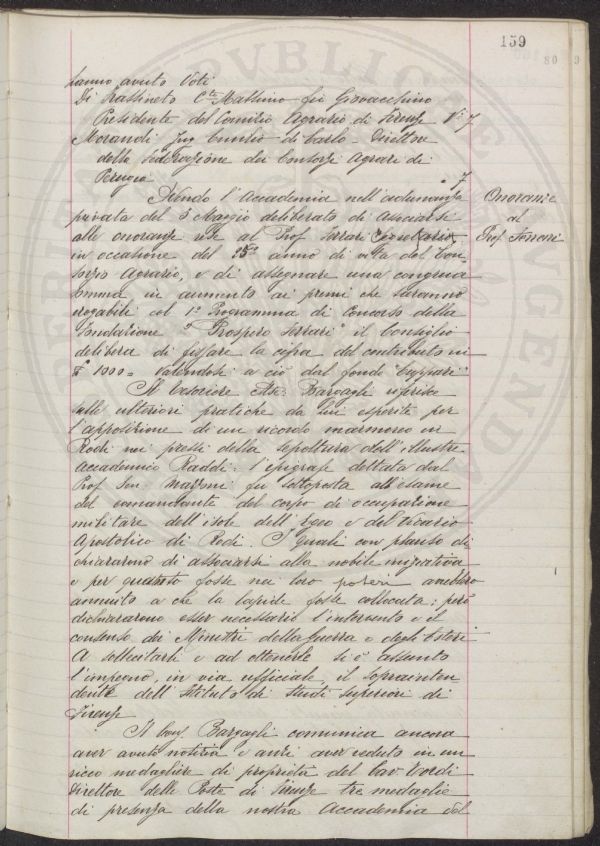 159
hanno avuto Voti
Di Frassineto Cte Massimo fu Giovacchino
Presidente del Comitio Agrario di Firenze N. 7
Morandi Ing Cunizio di Carlo - Direttore
della Federazione dei Consorzi Agrari di
Perugia " 7
Avendo l'Accademia nell'adunanza
privata del 3 Maggio deliberato di associarsi
alle onoranze rese al Prof Ferrari
in occasione del 25° anno di vita del Con
sorzio Agrario, e di assegnare una congrua
somma in aumento ai premi che saranno
erogabili col 1° Programma di Concorso della
Fondazione "Prospero Ferrari" il Consiglio
delibera di fissare la cifra del contributo in
£ 1000 = valendosi a ciò dal fondi Cuppari
Onoranze
al
Prof. Ferrari
Il Tesoriere Mse Bargagli riferisce
sulle ulteriori pratiche da lui esperite per
l'apposizione di un ricordo marmoreo in
Rodi nei pressi della sepoltura dell'illustre
accademico Raddi: l'epigrafe dettata dal
Prof Sen Mazzoni fu sottoposta all'esame
del comandante del corpo di occupazione
militare dell'isole dell'Egeo e del vicario
Apostolico di Rodi. I quali con plauso di
chiararono di associarsi alla nobile iniziativa
e per quanto fosse nei loro poteri avrebbero
annuito a che la lapide fosse collocata; però
dichiararono esser necessario l'intervento e il
consenso dei Ministri della Guerra e degli Esteri
A sollecitarli e ad ottenerle si è assunto
l'impegno, in via ufficiale, il soprainten
dente dell'Istituto di Studi superiori di
Firenze
Il Cons. Bargagli comunica ancora
aver avuto notizia e anzi aver veduto in un
ricco medagliere di proprietà del Cav. Verdi
direttore delle Poste di Firenze tre medaglie
di presenza della nostra Accademia del